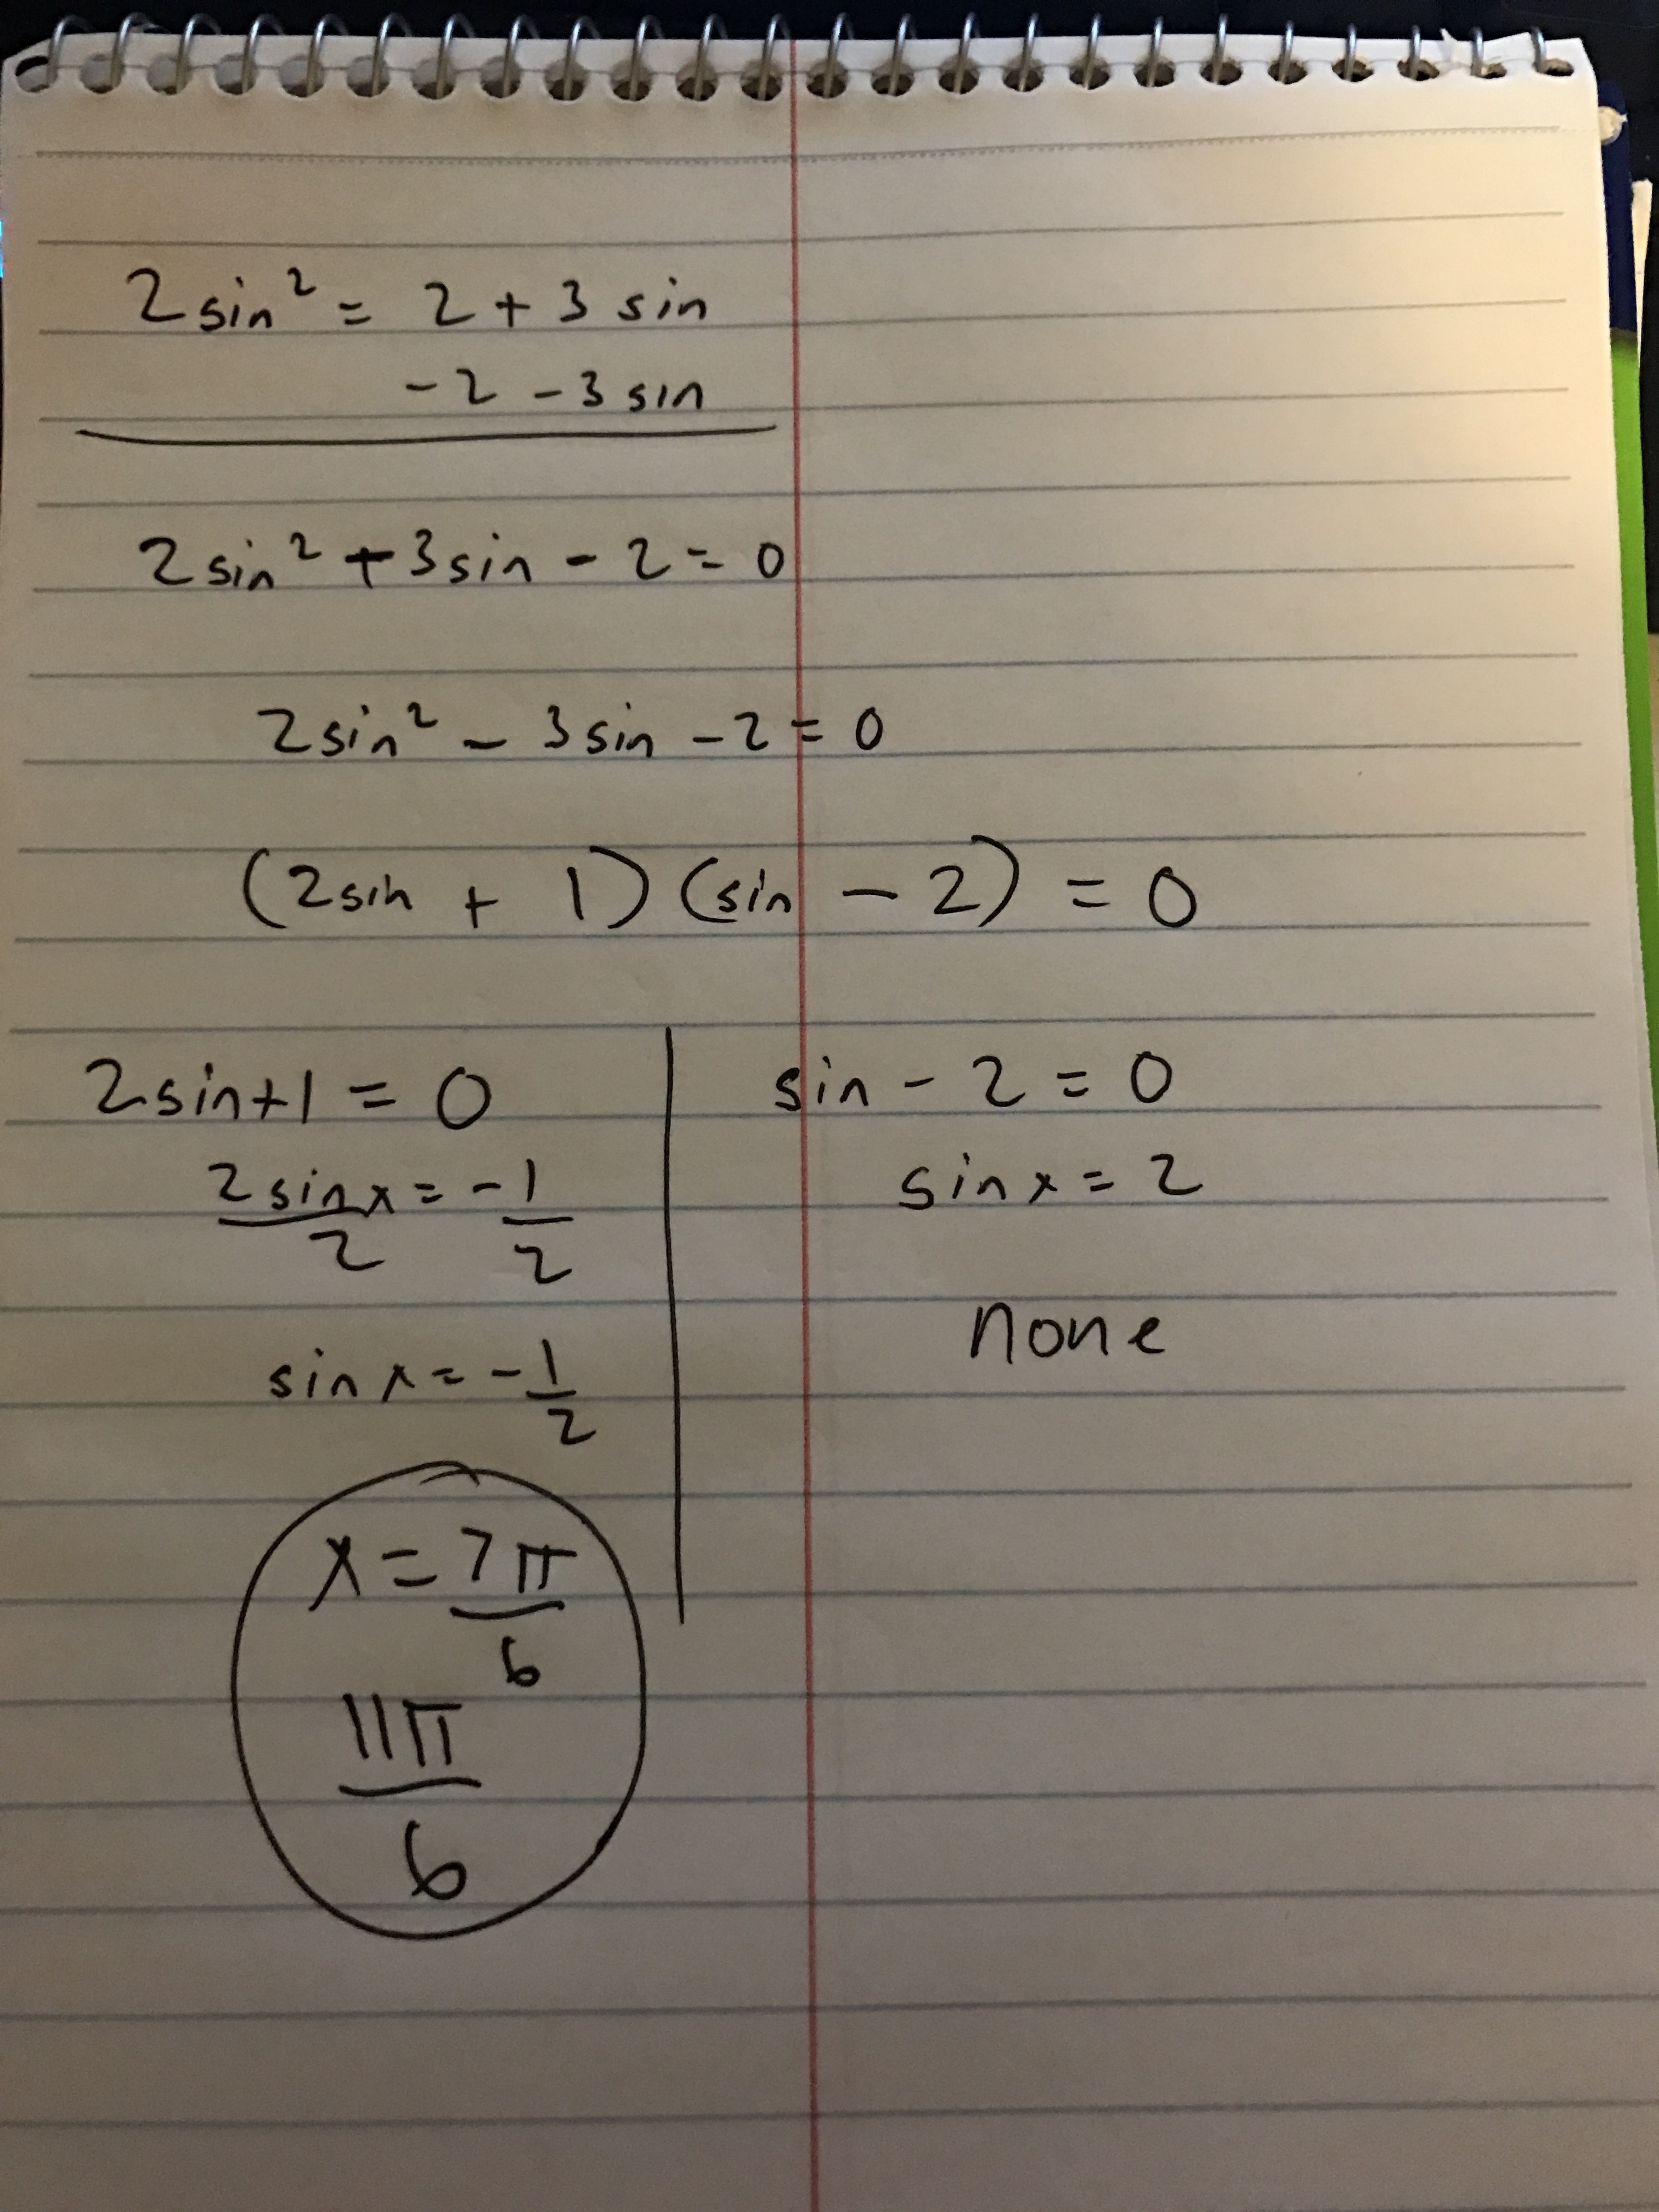 2 sin² = 2 + 3 sin
-2 - 3 sin
2 sin² + 3 sin - 2 = 0
2 sin² - 3 sin - 2 = 0
(2 sin + 1) (sin - 2) = 0
2 sin + 1 = 0
2 sin x / 2 = -1 / 2
sin x = -1/2
x = 7π/6
11π/6
sin - 2 = 0
sin x = 2
none